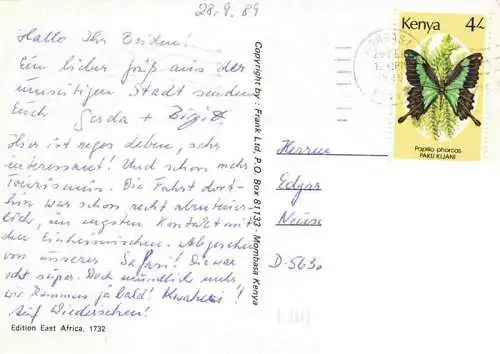 28.9.89
Hallo Ihr Beiden!
Ein lieber Gruß aus der
umseitigen Stadt senden
Euch Gerda + Birgit
Hier ist reges Leben, sehr
interessant! Und schon mehr
Tourismus. Die Fahrt dort-
hin war schon recht abenteuer-
lich, im engsten Kontakt mit
den Einheimischen. Abgesehen
von unserer Safari! Die war
echt super. Doch mündlich mehr
wir kommen ja bald! Kwaheri!
Auf Wiedersehen!
Edition East Africa, 1732
Copyright by: Frank Ltd, P.O. Box 81133 - Mombasa Kenya
Kenya 4/-
Papilio phorcas
PAKU KIJANI
Herren
Edgar
D-5630